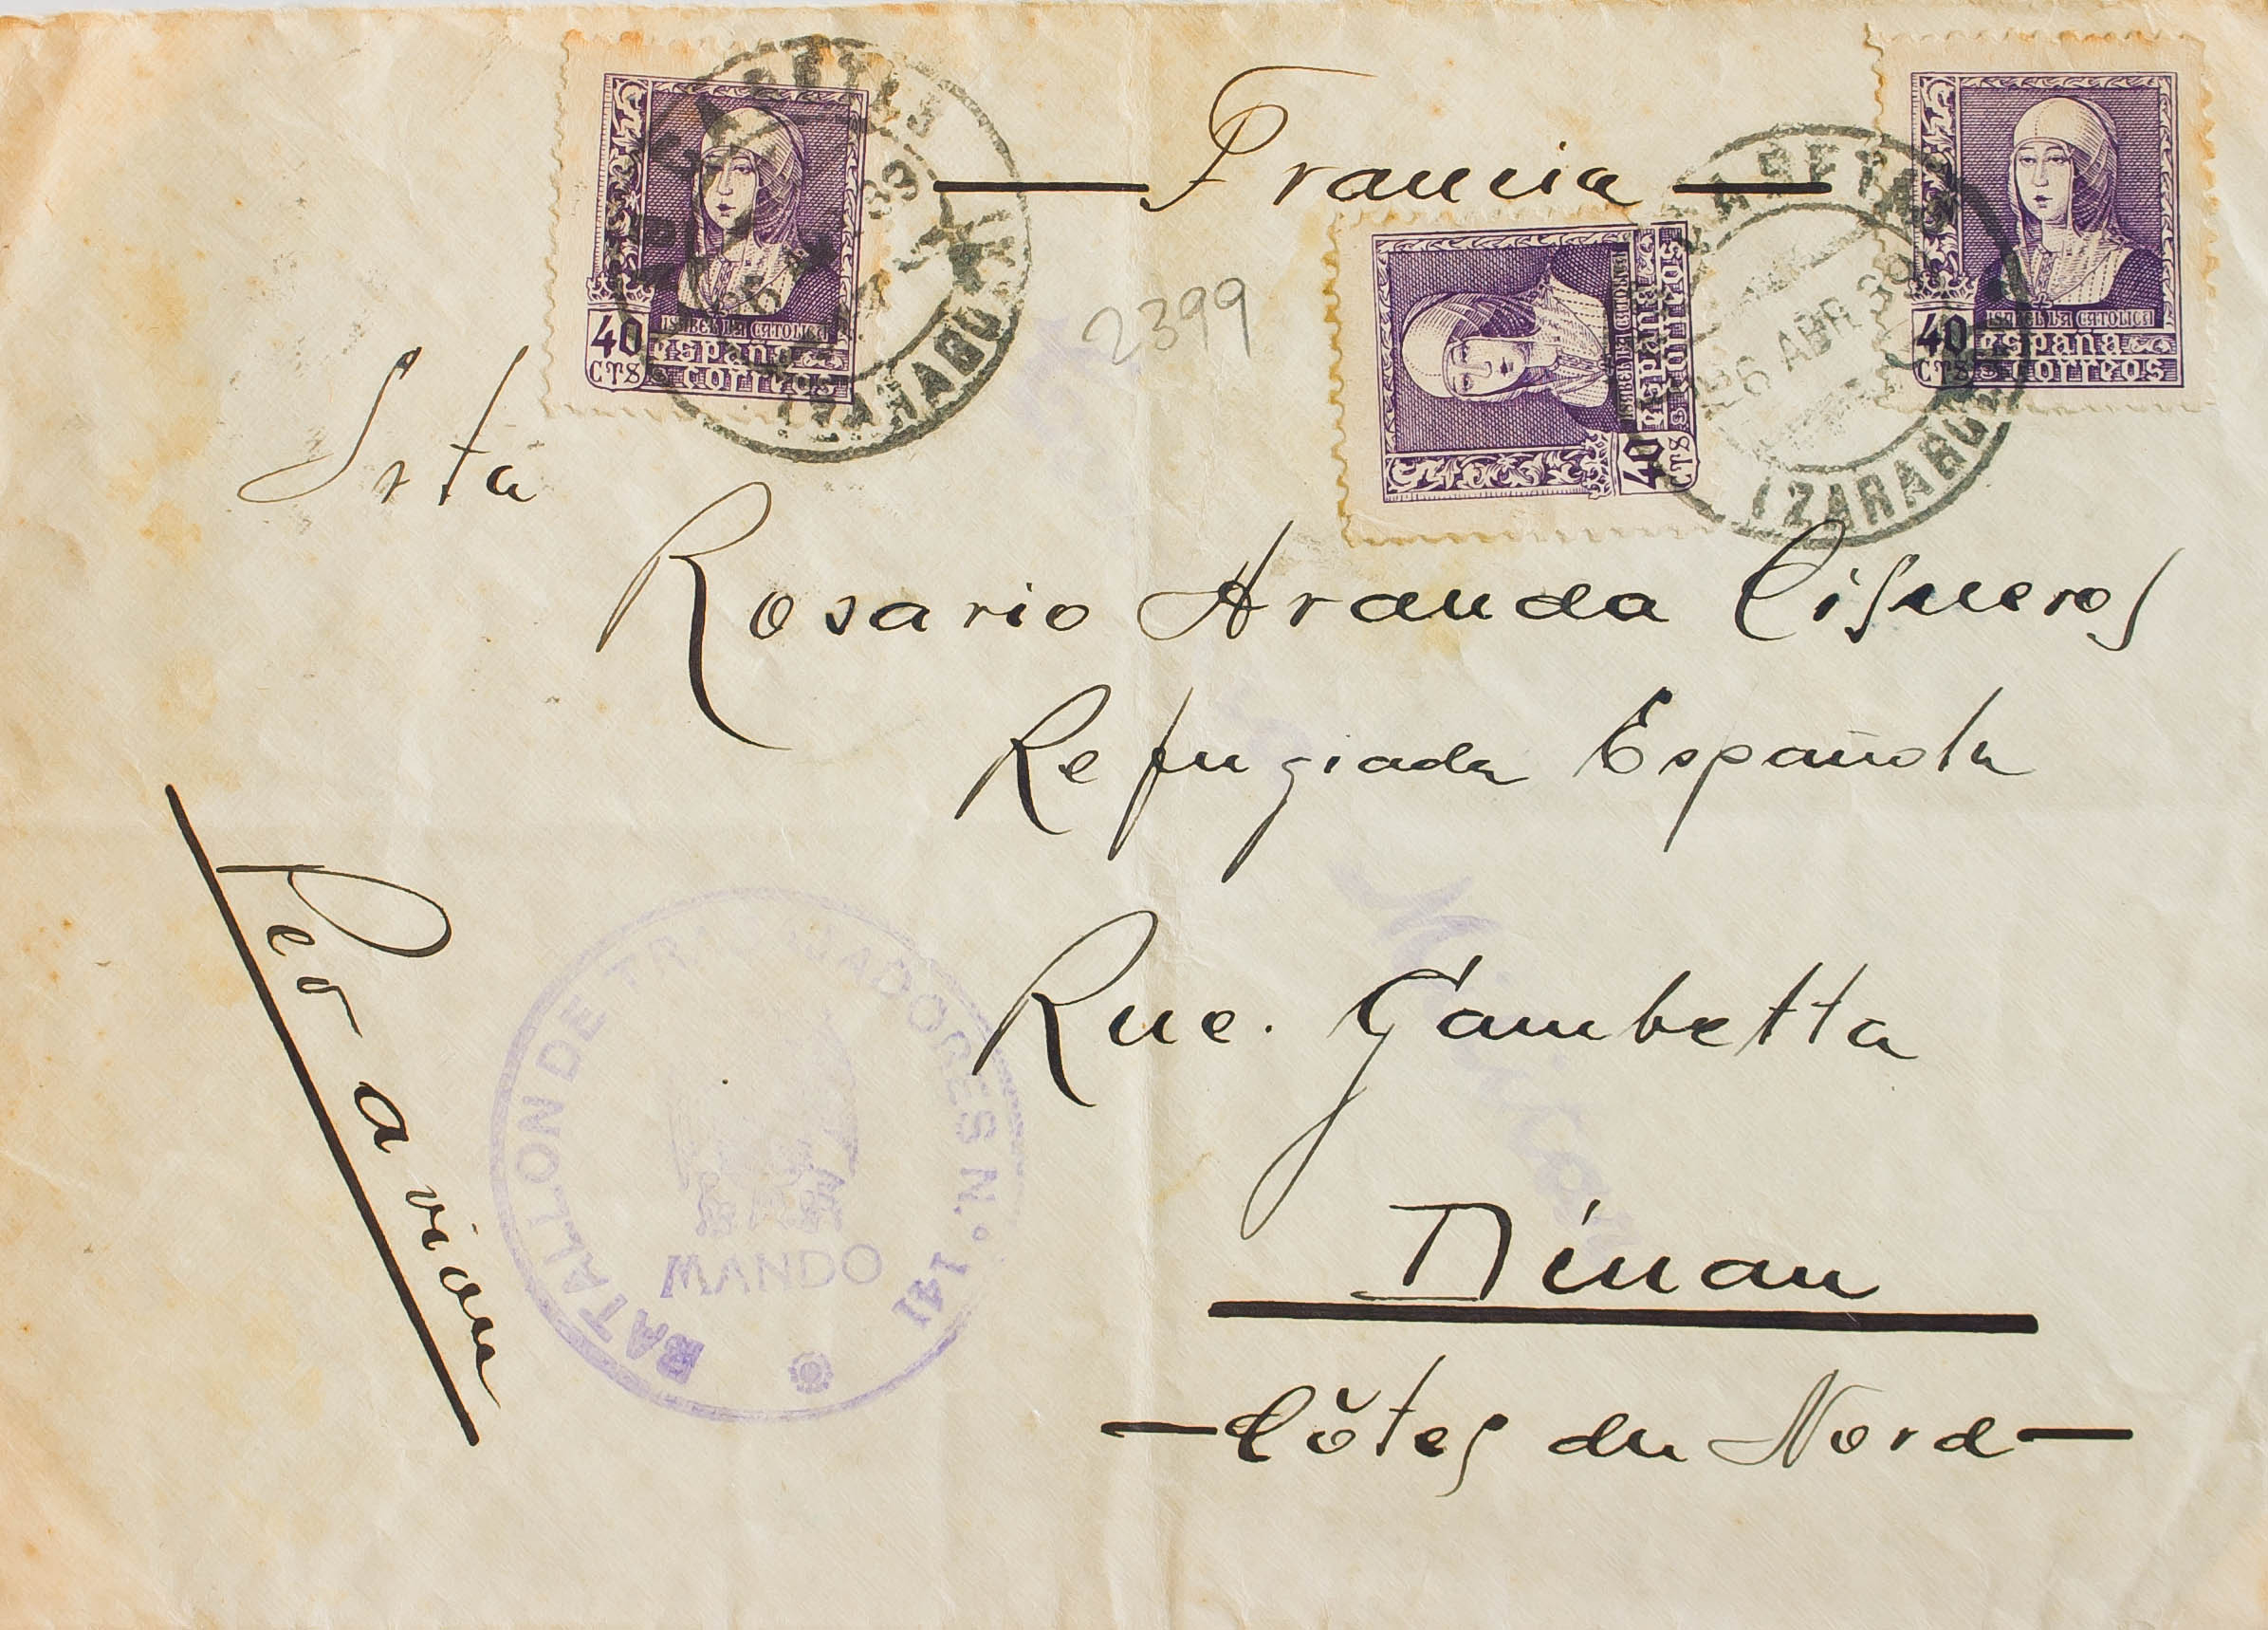 — Francia —
ISABEL LA CATOLICA
40 CTS
España
Correos
ISABEL LA CATOLICA
40 CTS
España
Correos
ISABEL LA CATOLICA
40 CTS
España
Correos
26 ABR 39
2399
Srta
Rosario Aranda Cisneros
Refugiada Española
Rue. Gambetta
Dinan
— Côtes du Nord —
Por avion
BATALLON DE TRABAJADORES N.º 141
MANDO